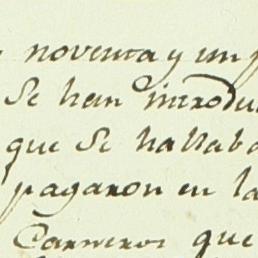 noventa y un
se han introdu
que se hallaba
pagaron en la
Carneros que